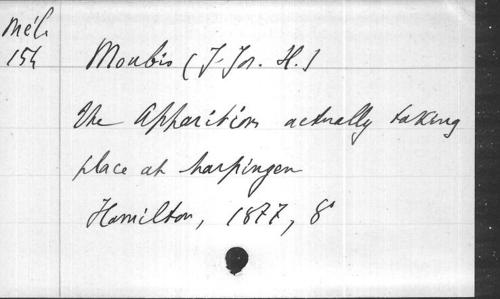 Mél.
154
Moubis (J-Jos. H.)
The Apparition actually taking
place at harpingen
Hamilton, 1877, 8°